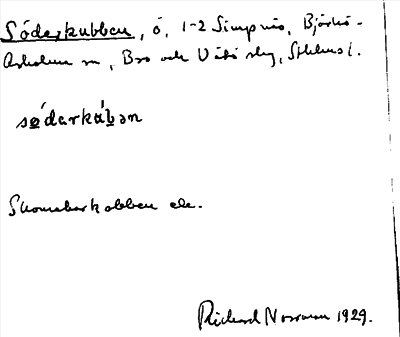 Söderkubben, ö, 1-2 Simpnäs, Björkö-
Arholma sn, Bro och Vätö skg, Sthlms l.
södarkúbən
Skomakarkobben ek.
Richard Norman 1929.